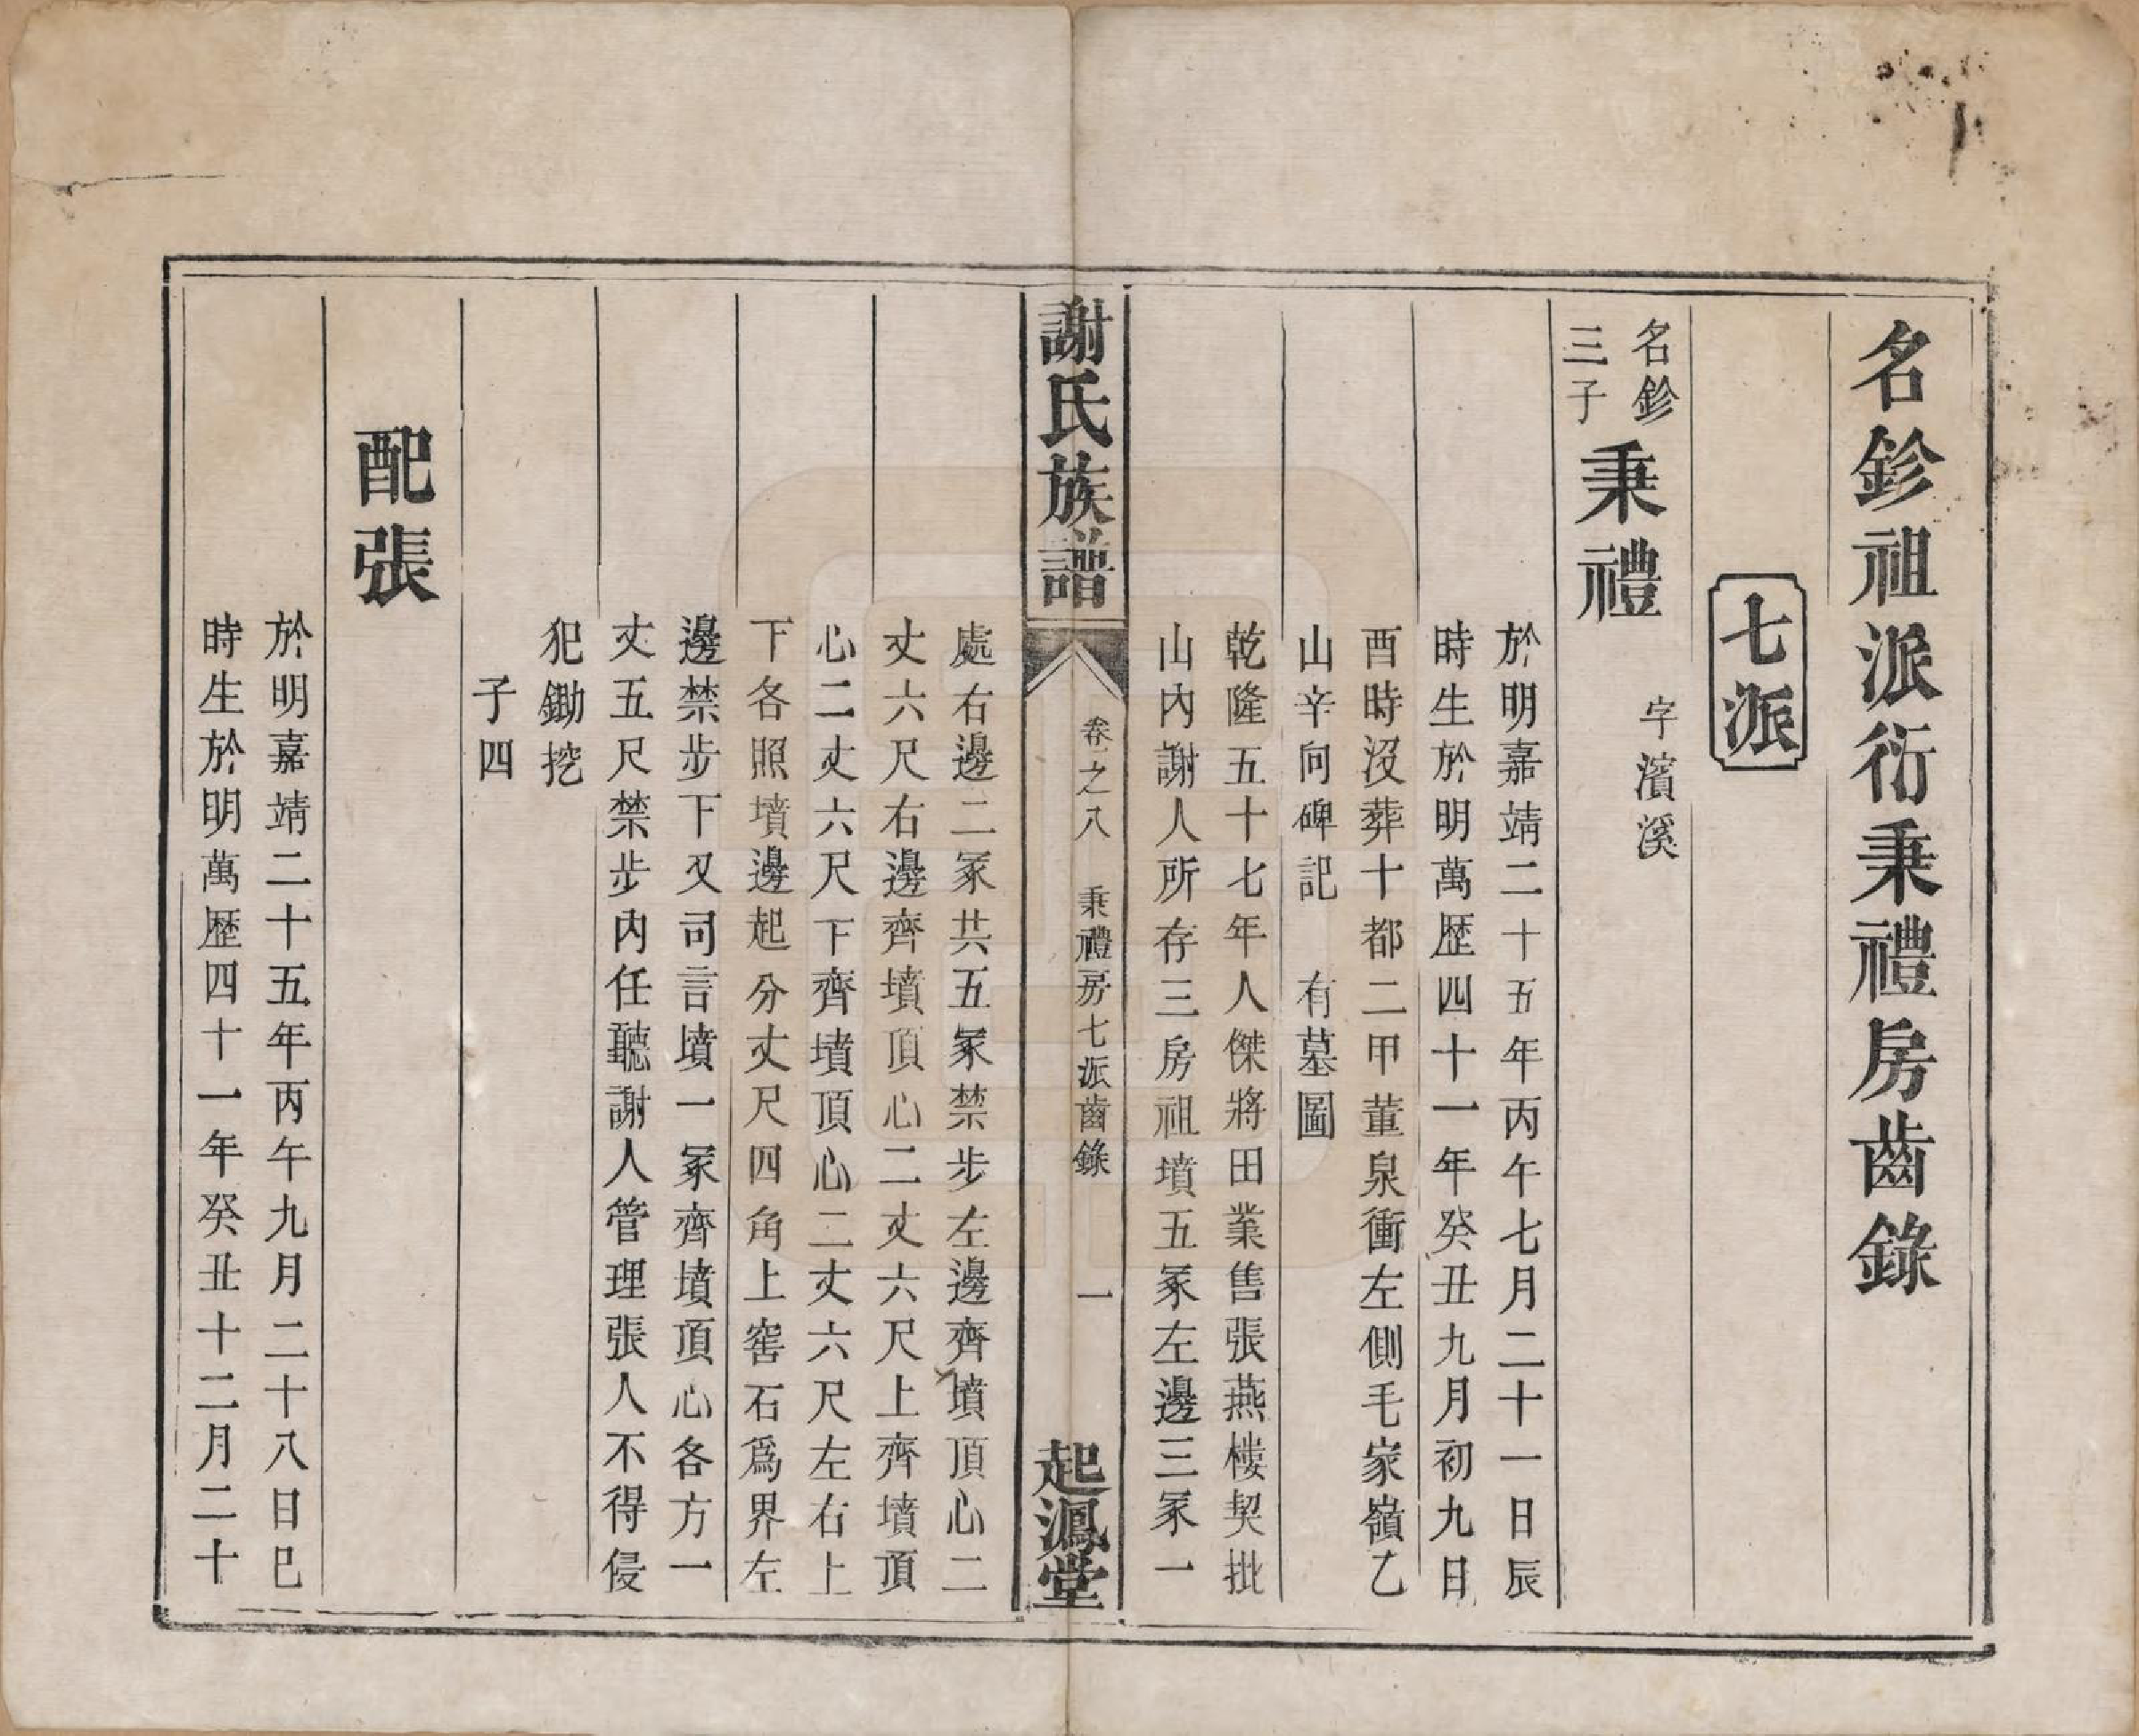 名鉁祖派衍秉禮房齒錄
七派
名鉁
三子
秉禮
字濱溪
於明嘉靖二十五年丙午七月二十一日辰
時生於明萬歷四十一年癸丑九月初九日
酉時沒葬十都二甲董泉衝左側毛家嶺乙
山辛向碑記　有墓圖
乾隆五十七年人傑將田業售張燕樓契批
山內謝人所存三房祖墳五冢左邊三冢一
謝氏族譜
卷之八　秉禮房七派齒錄
一
起鳳堂
處右邊二冢共五冢禁步左邊齊墳頂心二
丈六尺右邊齊墳頂心二丈六尺上齊墳頂
心二丈六尺下齊墳頂心二丈六尺左右上
下各照墳邊起分丈尺四角上窖石爲界左
邊禁步下又司言墳一冢齊墳頂心各方一
丈五尺禁步內任聽謝人管理張人不得侵
犯鋤挖
子四
配張
於明嘉靖二十五年丙午九月二十八日巳
時生於明萬歷四十一年癸丑十二月二十